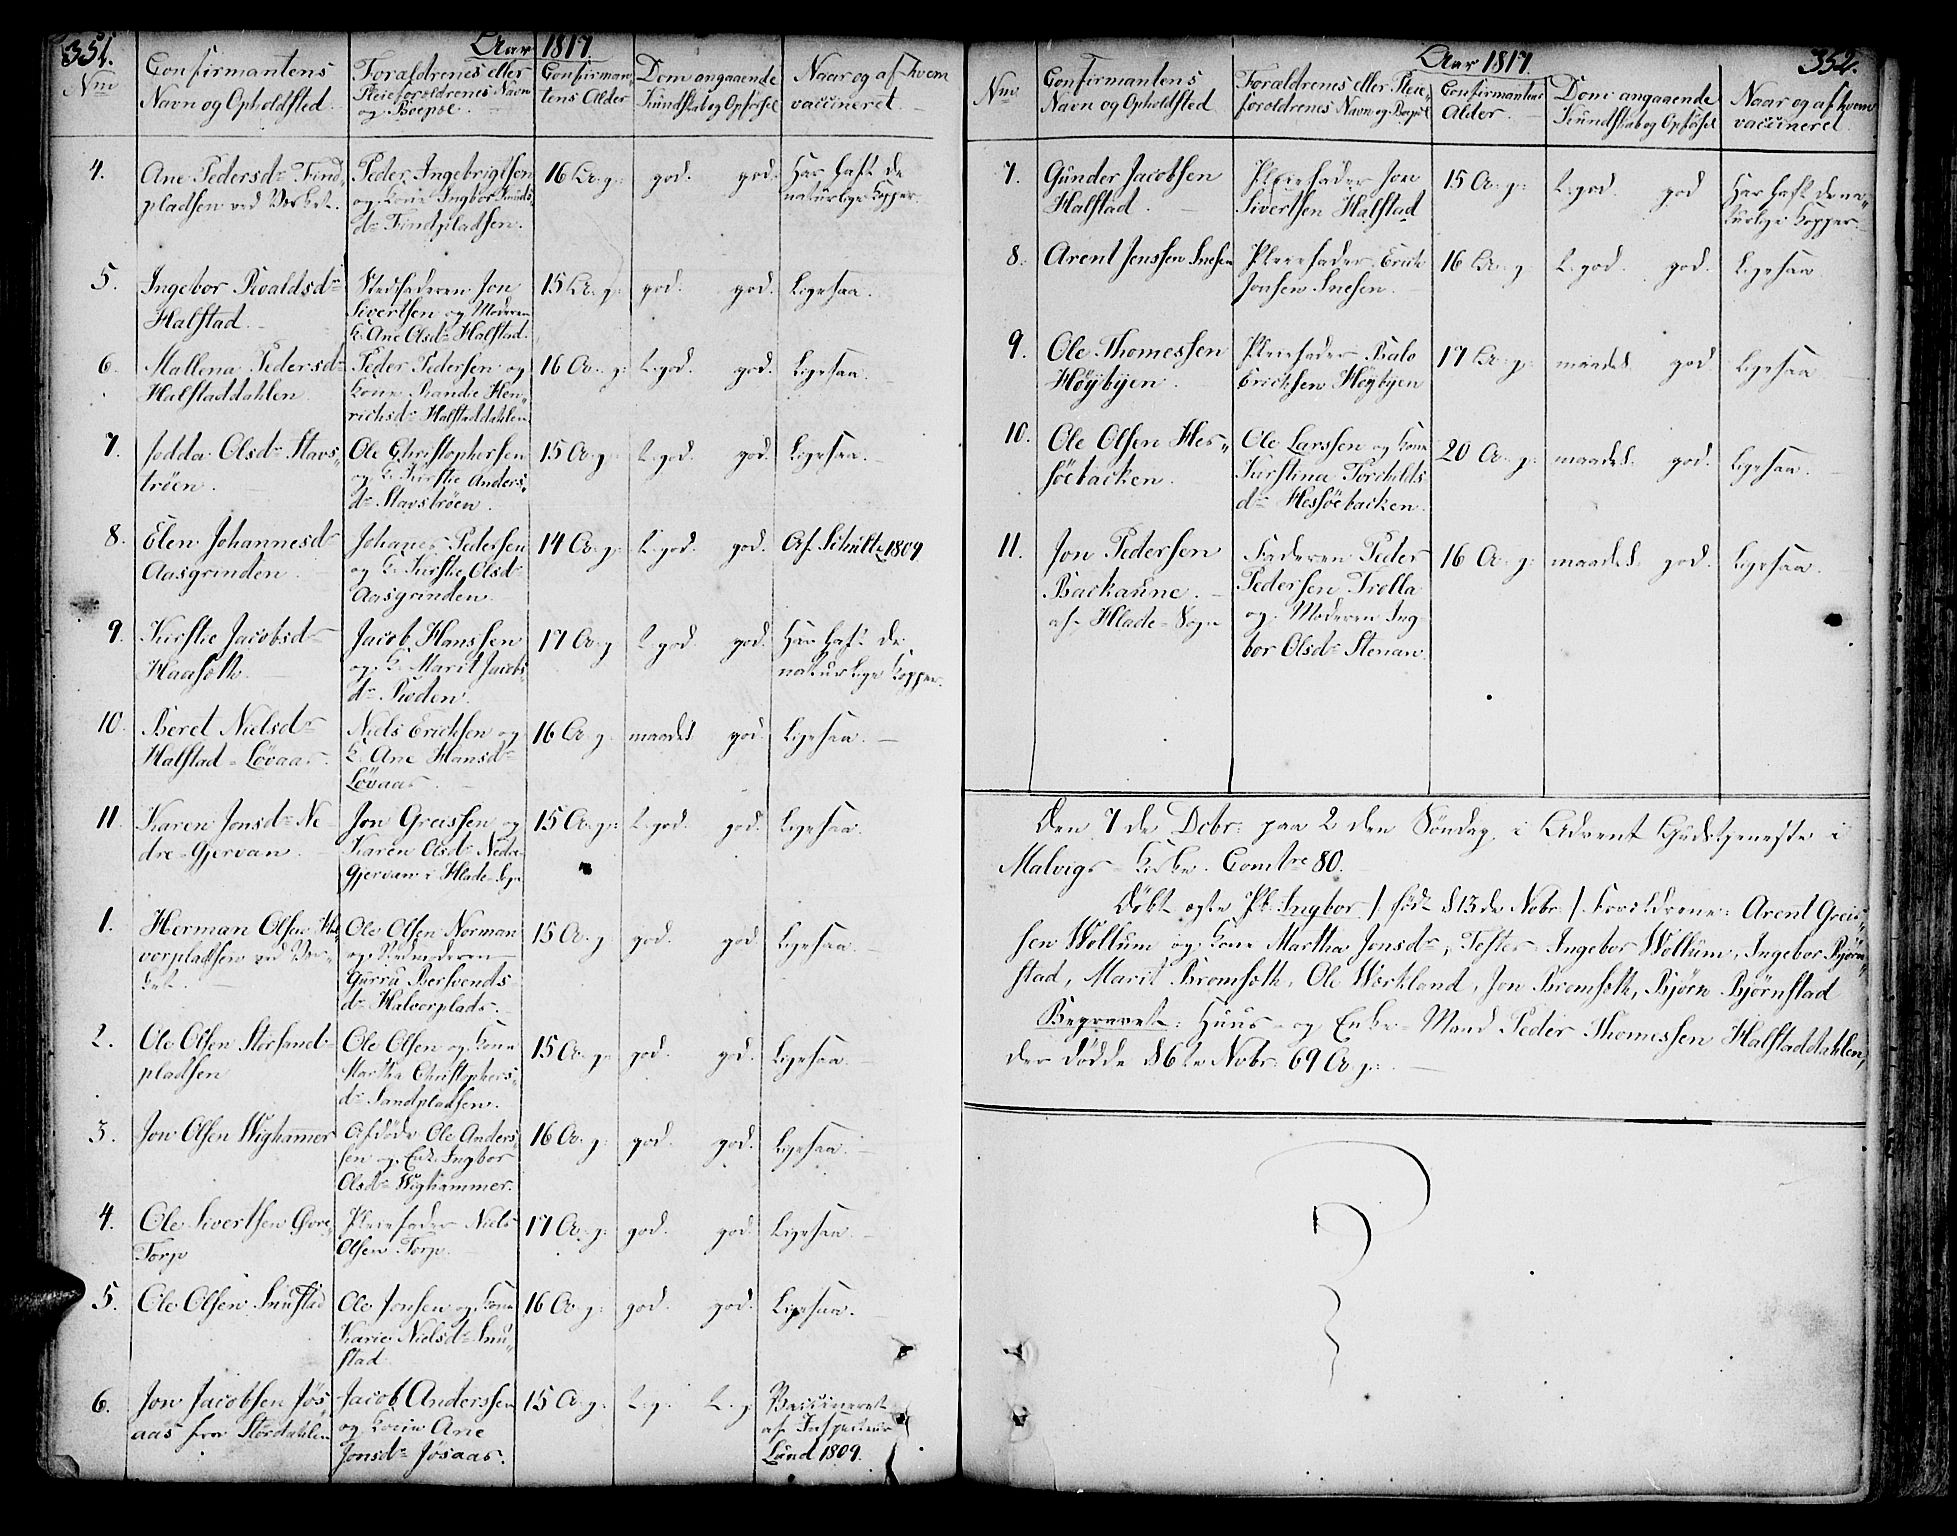 351.
Aar 1817
Nro
Confirmantens
Navn og Opholdsted
Foræledrenes eller
Pleieforældrenes Navn
og Boepæl.
Confirman-
tens Alder
Dom angaaende
Kundskab og Opførsel
Naar og af hvem
vaccineret.
4.
Ane Pedersdr Find„
pladsen ved Verket.
Peder Ingebrigtsen
og Kone Ingbor Knuds
dr Findpladsen.
16 Aar g:
god.
god.
Har haft de
naturlige Kopper.
5.
Ingebor Sivaldsdr
Halstad.
Stedfaderen Jon
Sivertsen og Moderen
K: Ane Olsdr Halstad.
15 Aa. g:
god.
god.
Ligesaa.
6.
Mallena Pedersdr
Halstaddahlen.
Peder Pedersen og
Kone Randie Hen„
richsdr Halstaddahlen
16 Aa. g:
L. god.
god.
Ligesaa.
7.
Jodda Olsdr Stavs„
tröen.
Ole Christophersen
og K: Kirstie Anders„
dr Stavströen.
15 Aa. g:
L. god.
god.
Ligesaa.
8.
Elen Johannesdr
Aasgrinden
Johanes Pedersen
og K: Kirstie Olsdr
Aasgrinden.
14 Aa. g:
L. god.
god.
Af Schult 1809
9.
Kirstie Jacobsdr
Haasæth.
Jacob Hanssen
og K: Marit Jacobs
dr Sveden.
17 Aa. g
L. god.
god.
Har haft de
naturlige Kopper.
10.
Beret Nielsdr
Halstad-Løvaas.
Niels Ericksen og
K: Ane Hansdr
Lövaas.
16 Aa. g.
maadel.
god.
Ligesaa.
11.
Karen Jonsdr Ne
dre-Gjervan.
Jon Greissen og
Karen Olsdr Nedre
Gjervan i Hlade-Sogn
15 Aa. g:
L. god.
god.
Ligesaa.
1.
Herman Olsen Hal
vorpladsen ved Ver-
ket.
Ole Olsen Norman
og Stedmoderen
Gurru Bersvends
dr Halvorplads.
15 Aa. g:
god.
god
Ligesaa.
2.
Ole Olsen Storsand-
pladsen
Ole Olsen og Kone
Martha Christophers„
dr Sandpladsen.
15 Aa. g:
god.
god.
Ligesaa.
3.
Jon Olsen Wighamer
Afdøde Ole Anders„
sen og Enk. Ingbor
Olsdr Wighammer.
16 Aa. g:
god.
god.
Ligesaa.
4.
Ole Sivertsen Gvre
Torp
Pleiefader Niels
Olsen Torp.
17 Aa. g:
god.
god.
Ligesaa.
5.
Ole Olsen Snustad
Ole Jonsen og Kone
Karie Nielsdr Snu„
stad
16 Aa. g:
god.
god.
Ligesaa.
6.
Jon Jacobsen Jös„
aas fra Stördahlen
Jacob Anderssen
og Kone Ane
Jonsdr Jösaas.
15 Aa. g.
L. g.
L. g
Vaccineret
af Inspecteur
Lund 1809.
352.
Aar 1817
Nro
Confirmantens
Navn og Opholdsted
Forældrenes eller Pleie„
forældrenes Navn og Boepæl
Confirmantens
Alder.
Dom angaaende
Kundskab og Opførsel
Naar og af hvem
vaccineret.
7.
Gunder Jacobsen
Halstad.
Pleiefader Jon
Sivertsen Halstad
15 Aa. g:
L. god.
god
Har haft de na„
turlige Kopper.
8.
Arent Jenssen Snesen
Pleiefader Erich
Jonsen Snesen.
16 Aa. g:
L. god.
god.
Ligesaa.
9.
Ole Thomessen
Höybyen.
Pleiefader Balo
Ericksen Höybyen
17 Aa. g:
maadel.
god
Ligesaa
10.
Ole Olsen Hes„
söebacken.
Ole Larssen og Kone
Kirstina Torckilds
dr Hessöebacken.
20 Aa. g:
maadel.
god.
Ligesaa.
11.
Jon Pedersen
Backaune.
af Hlade-Sogn
Faderen Peder
Pedersen Trolla
og Moderen Ing
bor Olsdr Stenan.
16 Aa. g:
maadel.
god.
Ligesaa.
Den 7de Decbr: paa 2den Söndag i Advent Gudstjeneste i
Malvigs-Kirke. Comtre 80.
Døbt ægte Pb. Ingbor /: født d 13de Nobr :/ Forældrene: Arent Greis„
sen Wollum og Kone Martha Jonsdr, Tester: Ingebor Wollum, Ingebor Björn„
stad, Marit Bromsæth, Ole Werkland, Jon Bromsæth, Björn Björnstad
Begravet: Huus- og Enke-Mand Peder Thomessen Halstaddahlen,
der dødde d 6te Nobr: 69 Aa g:.